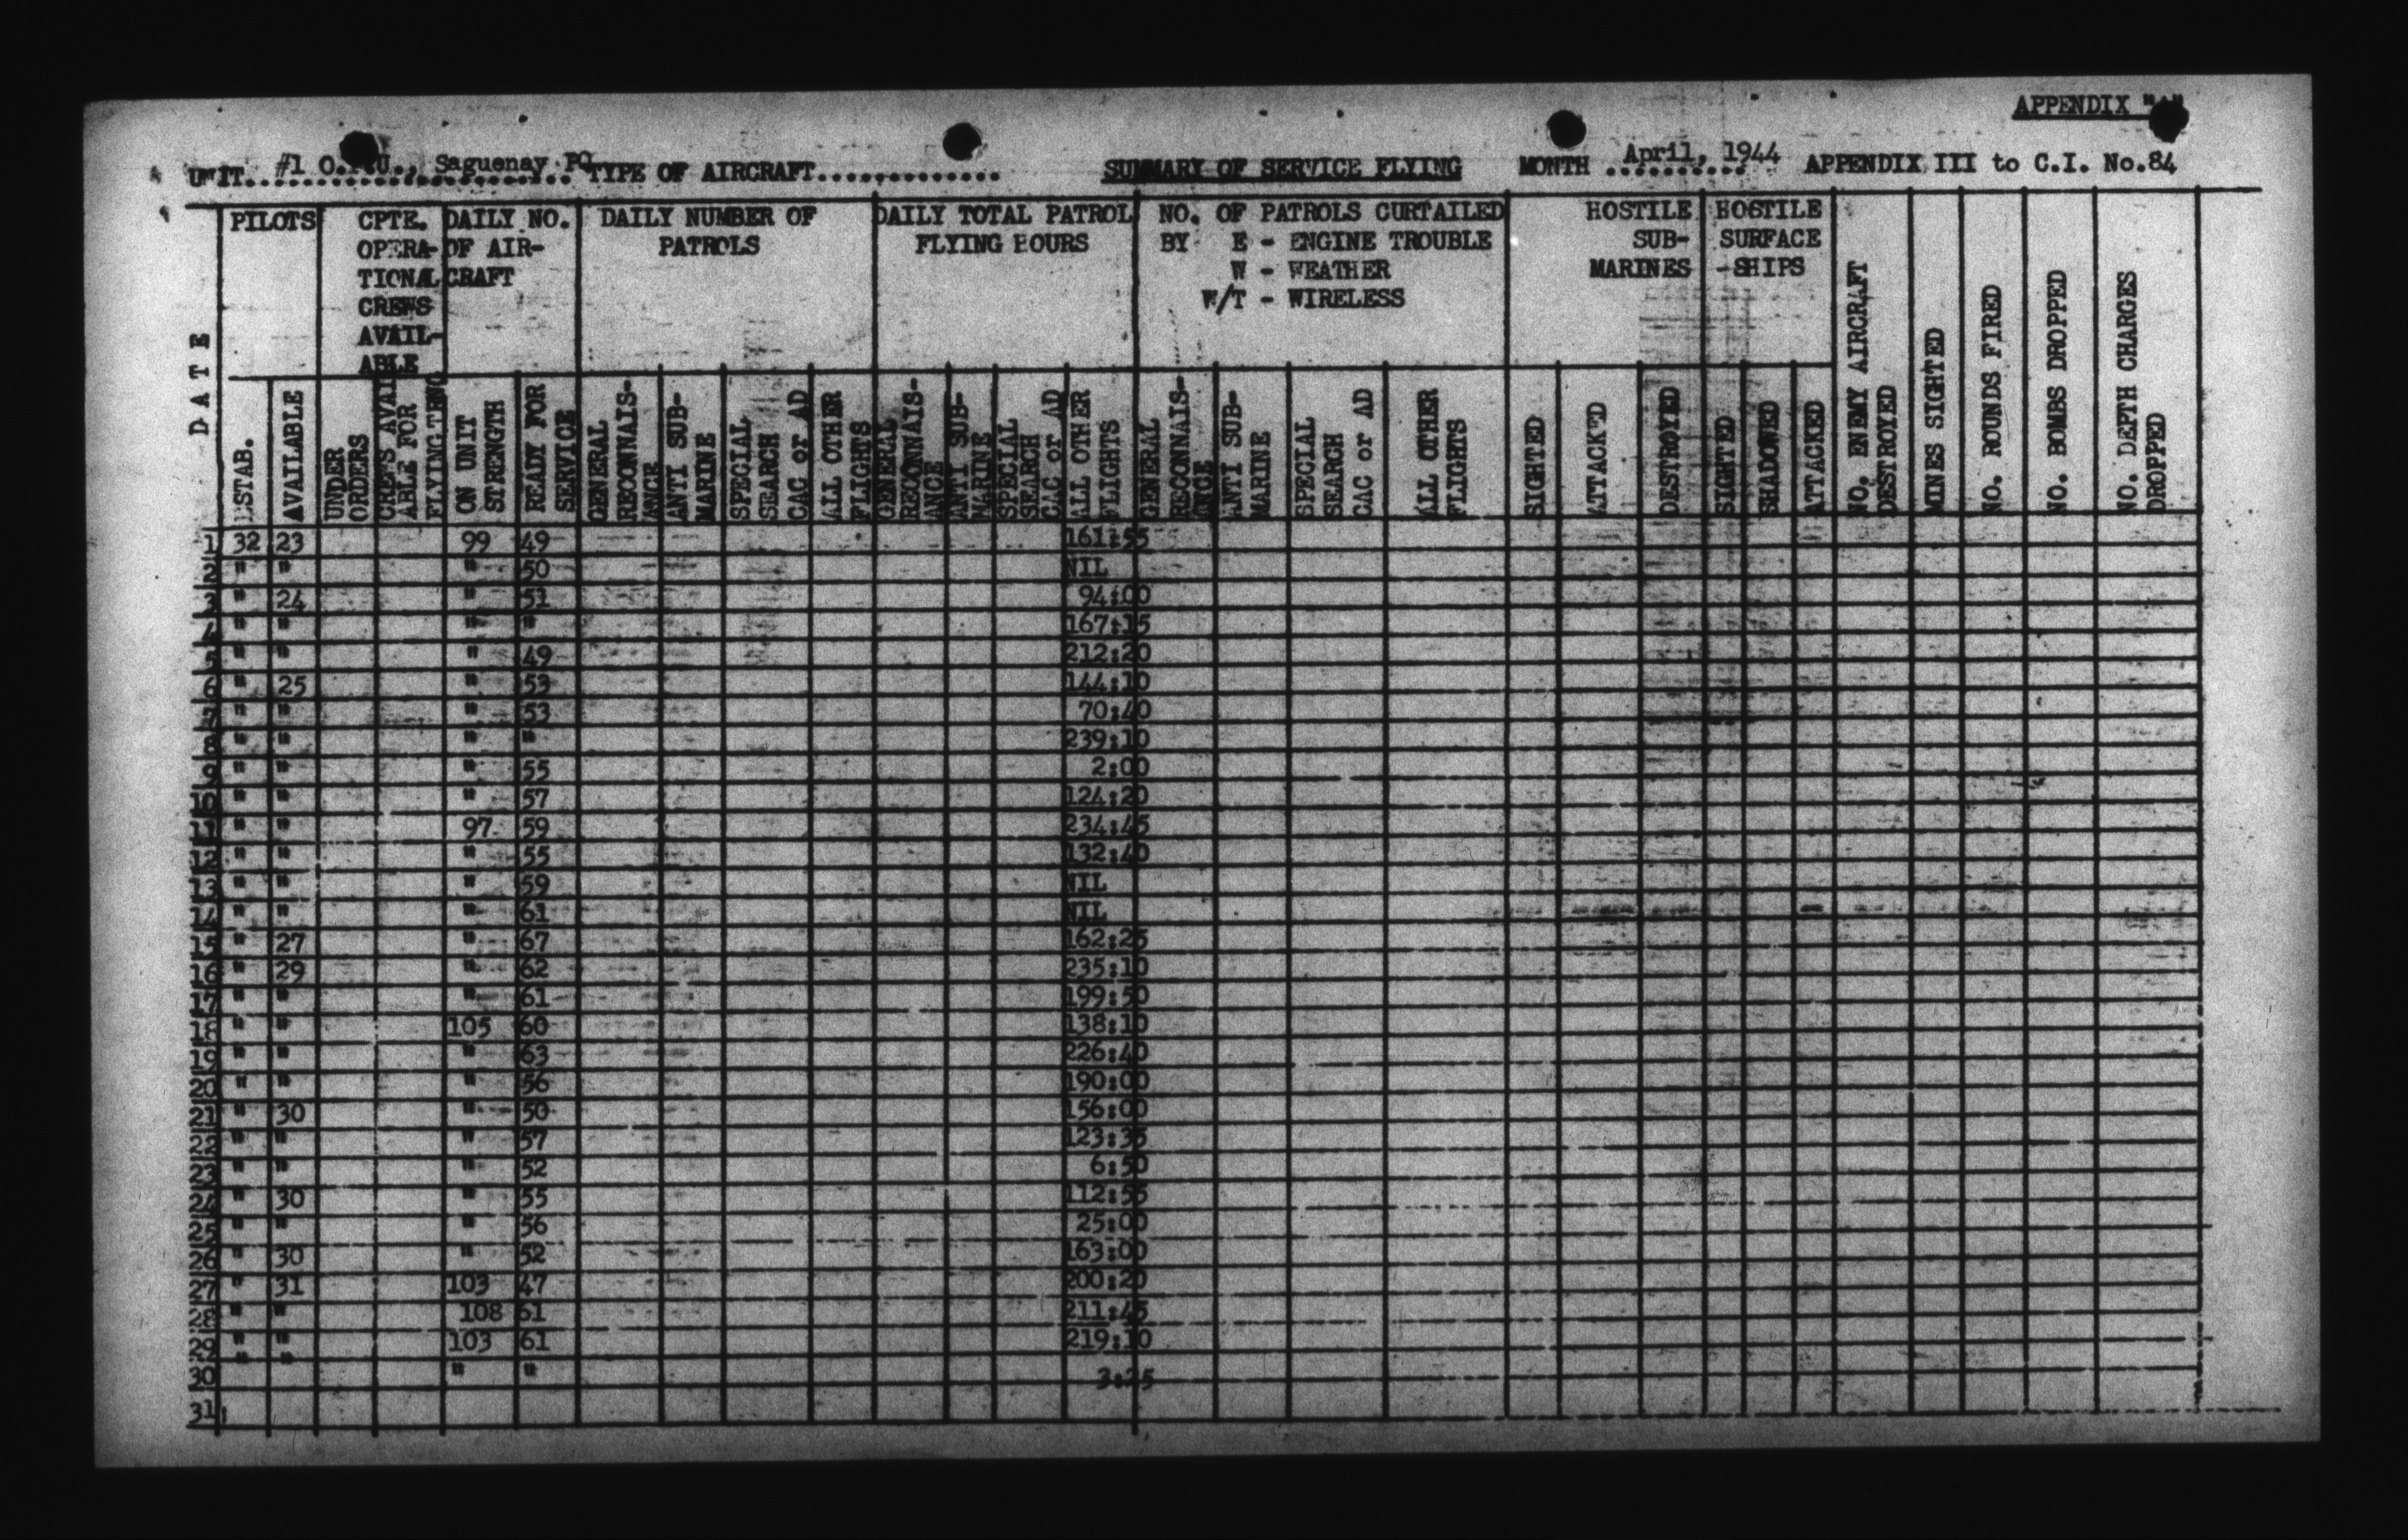 APPENDIX "A"
UNIT. #1 O.T.U., Saguenay PQ TYPE OF AIRCRAFT.............. SUMMARY OF SERVICE FLYING MONTH April, 1944 APPENDIX III to C.I. No.84
PILOTS CPTE. DAILY NO. DAILY NUMBER OF DAILY TOTAL PATROL NO. OF PATROLS CURTAILED HOSTILE HOSTILE
OPERA- OF AIR- PATROLS FLYING HOURS BY E - ENGINE TROUBLE SUB- SURFACE
TIONAL CRAFT W - WEATHER MARINES -SHIPS
CREWS W/T - WIRELESS
AVAIL-
ABLE
DATE
ESTAB.
AVAILABLE
UNDER ORDERS
CREWS AVAIL ABLE FOR FLYING
ON UNIT STRENGTH
READY FOR SERVICE
GENERAL RECONNAIS- ANCE
ANTI SUB- MARINE
SPECIAL SEARCH CAC or AD
ALL OTHER FLIGHTS
GENERAL RECONNAIS- ANCE
ANTI SUB- MARINE
SPECIAL SEARCH CAC or AD
ALL OTHER FLIGHTS
GENERAL RECONNAIS- ANCE
ANTI SUB- MARINE
SPECIAL SEARCH CAC or AD
ALL OTHER FLIGHTS
SIGHTED
ATTACKED
DESTROYED
SIGHTED
SHADOWED
ATTACKED
NO. ENEMY AIRCRAFT DESTROYED
MINES SIGHTED
NO. ROUNDS FIRED
NO. BOMBS DROPPED
NO. DEPTH CHARGES DROPPED
1 32 23 99 49 161:55
2 " " " 50 NIL
3 " 24 " 51 94:00
4 " " " " 167:15
5 " " " 49 212:20
6 " 25 " 53 144:10
7 " " " 53 70:40
8 " " " " 239:10
9 " " " 55 2:00
10 " " " 57 124:20
11 " " 97 59 234:45
12 " " " 55 132:40
13 " " " 59 NIL
14 " " " 61 NIL
15 " 27 " 67 162:25
16 " 29 " 62 235:10
17 " " " 61 199:50
18 " " 105 60 138:10
19 " " " 63 226:40
20 " " " 56 190:00
21 " 30 " 50 156:00
22 " " " 57 123:35
23 " " " 52 6:50
24 " 30 " 55 112:55
25 " " " 56 25:00
26 " 30 " 52 163:00
27 " 31 103 47 200:20
28 " " 108 61 211:45
29 " " 103 61 219:10
30 " " " " 
31